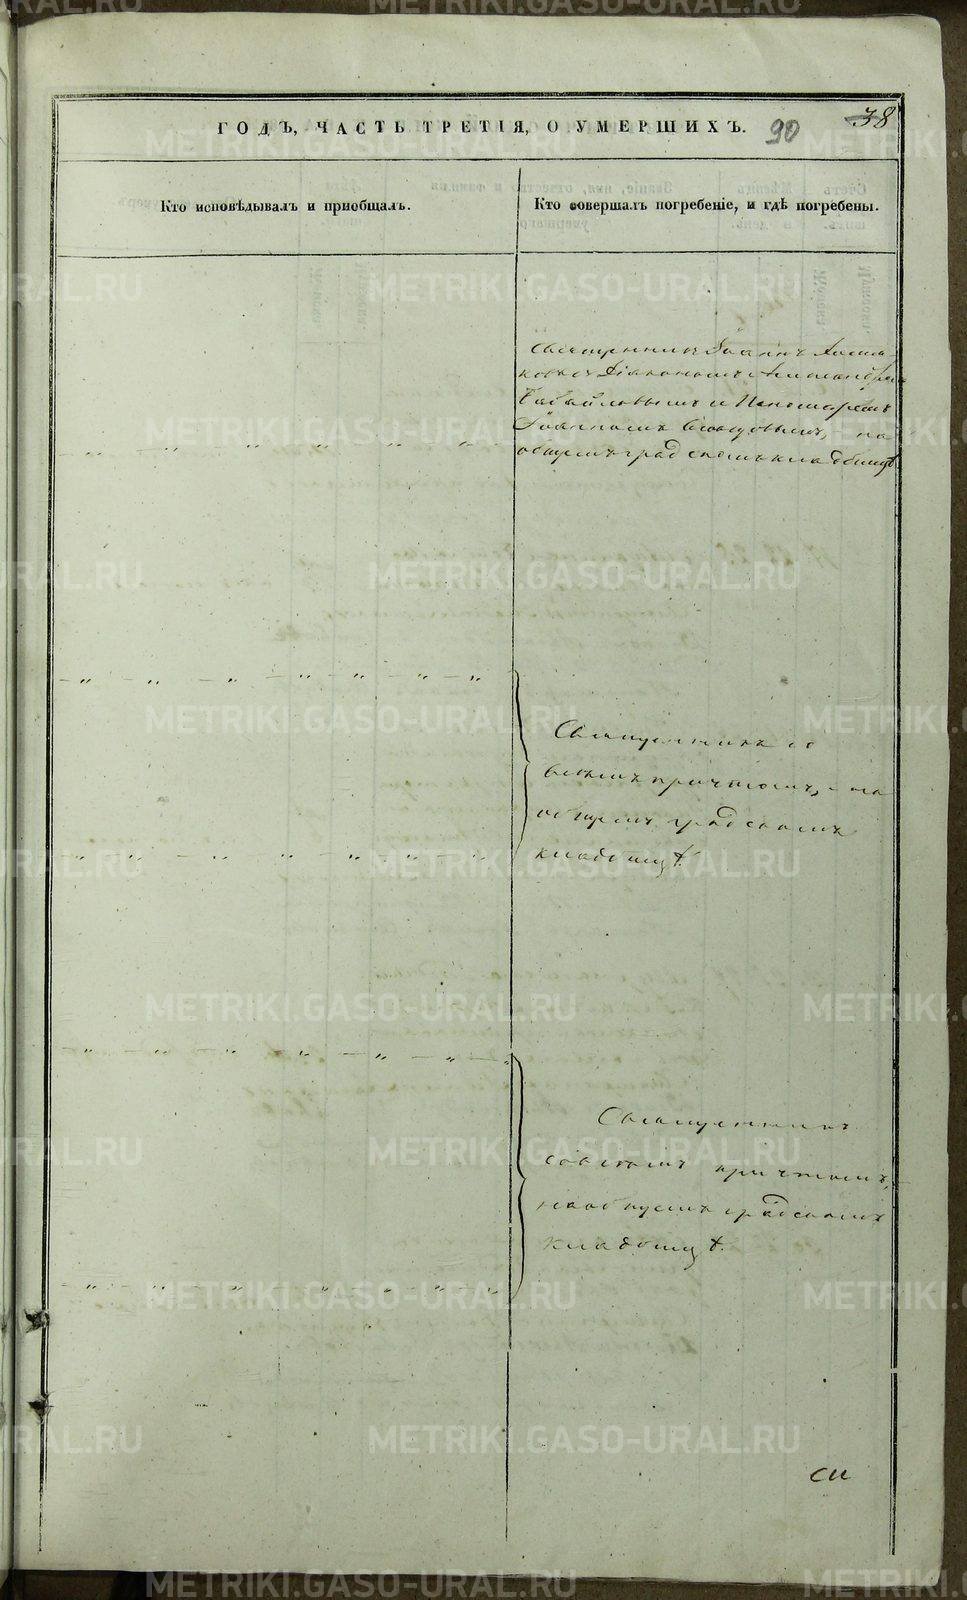 ГОДЪ, ЧАСТЬ ТРЕТІЯ, О УМЕРШИХЪ.
90
38
Кто исповѣдывалъ и пріобщалъ.
Кто совершалъ погребеніе, и гдѣ погребены.
Священникъ Іоаннъ
Діакономъ
и Пономаремъ
Іоанномъ на
общемъ градскомъ кладбищѣ
Священникъ со
всѣмъ причтомъ, на
общемъ градскомъ
кладбищѣ.
Священникъ
со всѣмъ причтомъ,
на общемъ градскомъ
кладбищѣ.
METRIKI.GASO-URAL.RU